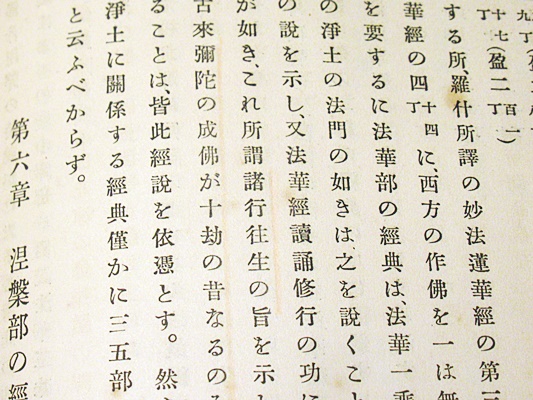 九丁
十七丁(盈二丁百一)
する所、羅什所譯の妙法蓮華經の第三
華經の四十四丁に、西方の作佛を一は無
を要するに法華部の經典は、法華一乘
の淨土の法門の如きは、之を說くこと
の說を示し、又法華經讀誦修行の功に
が如き、これ所謂諸行往生の旨を示し
古來彌陀の成佛が十劫の昔なるのみ
ることは、皆此經說を依憑とす。然
淨土に關係する經典僅かに三五部
と云ふべからず。
第六章 涅槃部の經